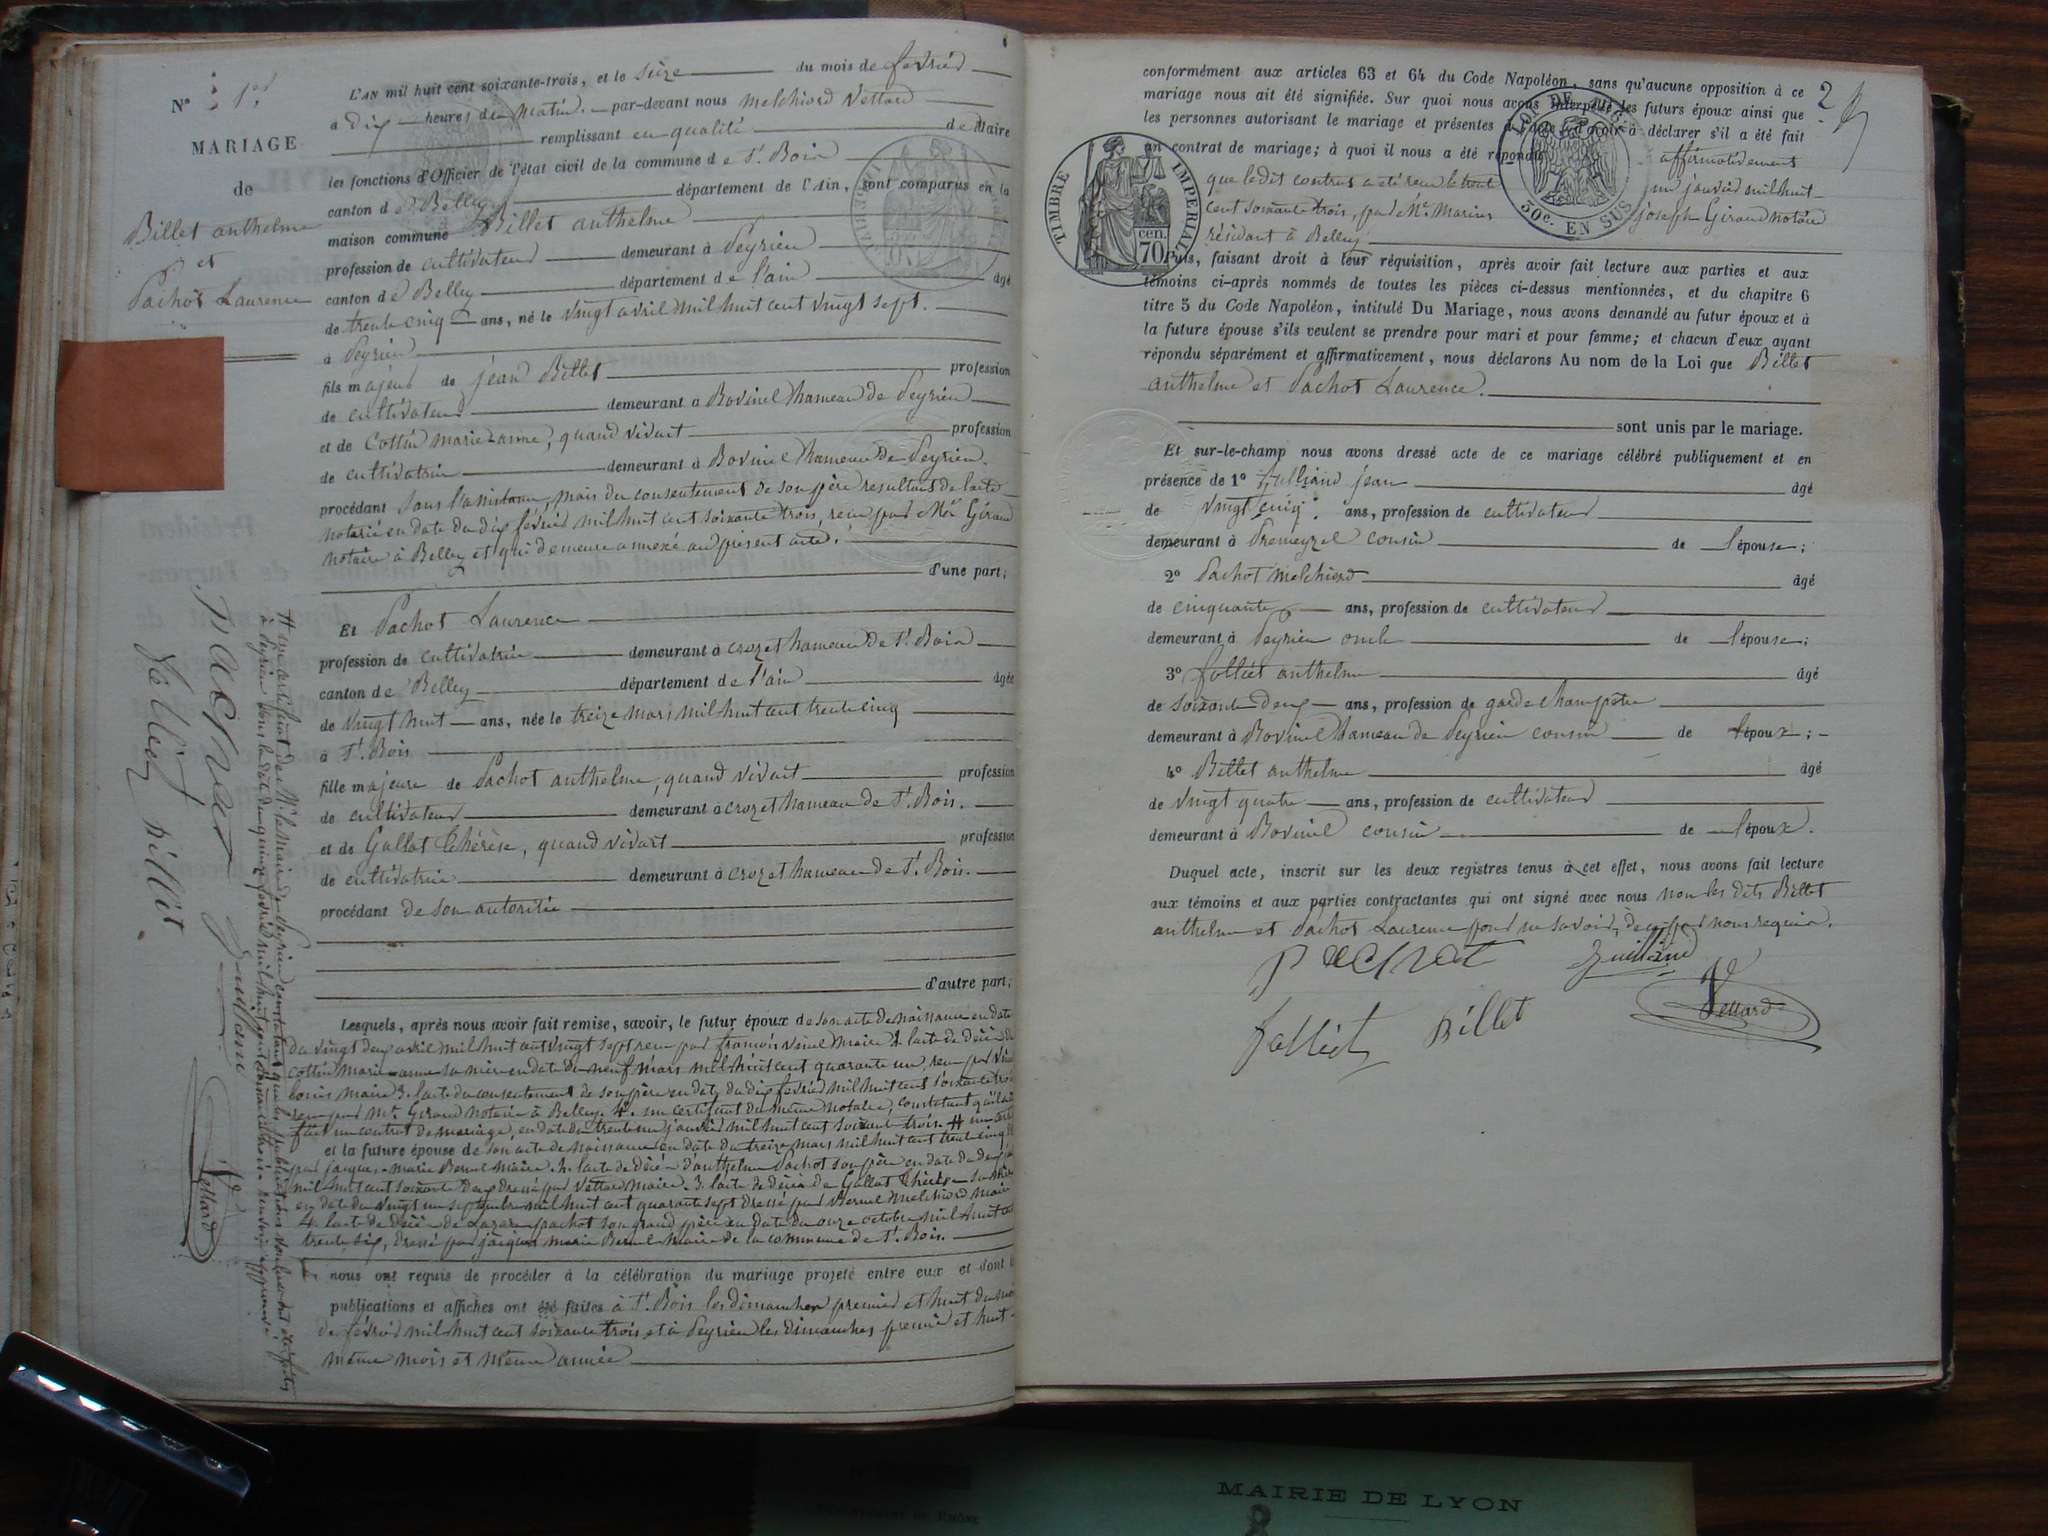 N° 1er
MARIAGE
de
Billet anthelme
et
Pachot Laurence
L'AN mil huit cent soixante-trois, et le seize du mois de février
à dix heures du matin. par-devant nous melchiord Vettard
remplissant en qualité de Maire
les fonctions d'Officier de l'état civil de la commune de St. Bois
canton de Belley département de l'Ain, sont comparus en la
maison commune Billet anthelme
profession de cultivateur demeurant à Peyrieu
canton de Belley département de l'ain âgé
de trente cinq ans, né le vingt avril mil huit cent vingt sept.
à Peyrieu
fils majeur de jean Billet profession
de cultivateur demeurant à Bovinel hameau de Peyrieu
et de Cottin marie-anne, quand vivait profession
de cultivatrice demeurant à Bovinel hameau de Peyrieu.
procédant sans l'assistance, mais du consentement de son père resultant de l'acte
notarié en date du dix février mil huit cent soixante trois, reçu par Me Giraud
notaire à Belley et qui demeure annexé au present acte.
d'une part;
Et Pachot Laurence
profession de cultivatrice demeurant à crozet hameau de St. Bois
canton de Belley département de l'ain âgée
de vingt huit ans, née le treize mars mil huit cent trente cinq
à St. Bois
fille majeure de Pachot anthelme, quand vivait profession
de cultivateur demeurant à crozet hameau de St. Bois.
et de Gallot thérèse, quand vivait profession
de cultivatrice demeurant à crozet hameau de St. Bois.
procédant de son autorité
d'autre part;
Lesquels, après nous avoir fait remise, savoir, le futur époux de son acte de naissance en date
du vingt deux avril mil huit cent vingt sept reçu par françois vinel maire 2. l'acte de décès de
cottin marie-anne sa mère en date du neuf mars mil huit cent quarante un, reçu par
louis maire 3. l'acte du consentement de son père en date du dix fevrier mil huit cent soixante trois
reçu par Me. Giraud notaire à Belley. 4. un certificat du même notaire, constatant qu'il a
fait un contrat de mariage, en date du trente un janvier mil huit cent soixante trois. #
et la future épouse de son acte de naissance en date du treize mars mil huit cent trente cinq
par jacques-marie Bernel maire. 2. l'acte de décès d'anthelme Pachot son père en date du deux
mil huit cent soixante deux dressé par Vettard maire. 3. l'acte de décès de Gallot thérèse sa mère
en date du vingt un septembre mil huit cent quarante sept dressé par Bernel melchiord maire
4. l'acte de décès de Lazare pachot son grand père en date du onze octobre mil huit cent
trente six, dressé par jacques marie Bernel maire de la commune de St. Bois.
nous ont requis de procéder à la célébration du mariage projeté entre eux et dont
publications et affiches ont été faites à St. Bois les dimanches premier et huit du mois
de février mil huit cent soixante trois et à Peyrieu les dimanches premier et huit
même mois et même année
# un certificat de Mr. le maire de Peyrieu constatant que les publications voulues ont été faites
à Peyrieu
Pachot Juilland
folliet Billet
Vettard
2
conformément aux articles 63 et 64 du Code Napoléon, sans qu'aucune opposition à ce
mariage nous ait été signifiée. Sur quoi nous avons interpellé les futurs époux ainsi que
les personnes autorisant le mariage et présentes à déclarer s'il a été fait
un contrat de mariage; à quoi il nous a été répondu affirmativement
que le dit contrat a été reçu le trente un janvier mil huit
cent soixante trois, par Me. Marius joseph Giraud notaire
résidant à Belley
TIMBRE IMPERIAL
70 cen.
50c. EN SUS
Puis, faisant droit à leur réquisition, après avoir fait lecture aux parties et aux
témoins ci-après nommés de toutes les pièces ci-dessus mentionnées, et du chapitre 6
titre 5 du Code Napoléon, intitulé Du Mariage, nous avons demandé au futur époux et à
la future épouse s'ils veulent se prendre pour mari et pour femme; et chacun d'eux ayant
répondu séparément et affirmativement, nous déclarons Au nom de la Loi que Billet
anthelme et Pachot Laurence.
sont unis par le mariage.
Et sur-le-champ nous avons dressé acte de ce mariage célébré publiquement et en
présence de 1° Juilland jean âgé
de vingt cinq ans, profession de cultivateur
demeurant à Premeyzel cousin de l'épouse;
2° Pachot melchiord âgé
de cinquante ans, profession de cultivateur
demeurant à Peyrieu oncle de l'épouse;
3° folliet anthelme âgé
de soixante deux ans, profession de garde champêtre
demeurant à Bovinel hameau de Peyrieu cousin de l'époux;
4° Billet anthelme âgé
de vingt quatre ans, profession de cultivateur
demeurant à Bovinel cousin de l'époux.
Duquel acte, inscrit sur les deux registres tenus à cet effet, nous avons fait lecture
aux témoins et aux parties contractantes qui ont signé avec nous non les dits Billet
anthelme et Pachot Laurence pour ne savoir, de ce par nous requis.
Pachot Juilland
folliet Billet Vettard
MAIRIE DE LYON